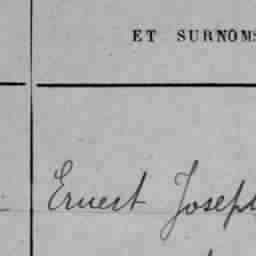 ET SURNOMS
Ernest Joseph